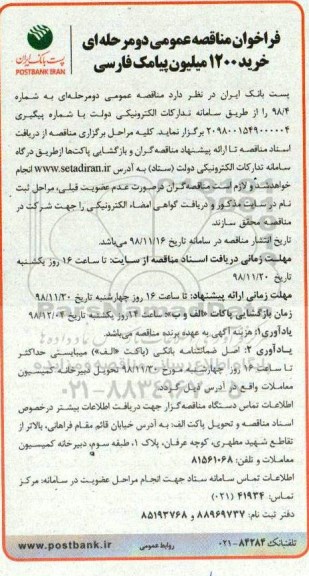 پست بانک ایران
POSTBANK IRAN
فراخوان مناقصه عمومی دومرحله‌ای
خرید ۱۲۰۰ میلیون پیامک فارسی
پست بانک ایران در نظر دارد مناقصه عمومی دومرحله‌ای به شماره
۹۸/۴ را از طریق سامانه تدارکات الکترونیکی دولت با شماره پیگیری
۲۰۹۸۰۰۱۵۴۹۰۰۰۰۰۴ برگزار نماید. کلیه مراحل برگزاری مناقصه از دریافت
اسناد مناقصه تا ارائه پیشنهاد مناقصه‌گران و بازگشایی پاکت‌ها از طریق درگاه
سامانه تدارکات الکترونیکی دولت (ستاد) به آدرس www.setadiran.ir انجام
خواهد شد و لازم است مناقصه‌گران در صورت عدم عضویت قبلی، مراحل ثبت
نام در سایت مذکور و دریافت گواهی امضاء الکترونیکی را جهت شرکت در
مناقصه محقق سازند.
تاریخ انتشار مناقصه در سامانه تاریخ ۹۸/۱۱/۱۶ می‌باشد.
مهلت زمانی دریافت اسناد مناقصه از سایت: تا ساعت ۱۶ روز یکشنبه
تاریخ ۹۸/۱۱/۲۰
مهلت زمانی ارائه پیشنهاد: تا ساعت ۱۶ روز چهارشنبه تاریخ ۹۸/۱۱/۳۰
زمان بازگشایی پاکات «الف و ب»: ساعت ۱۴ روز یکشنبه تاریخ ۹۸/۱۲/۰۴
یادآوری۱: هزینه آگهی به عهده برنده مناقصه می‌باشد.
یادآوری ۲: اصل ضمانتنامه بانکی (پاکت «الف») می‌بایستی حداکثر
تا ساعت ۱۶ روز چهارشنبه مورخ ۹۸/۱۱/۳۰ تحویل دبیرخانه کمیسیون
معاملات واقع در آدرس ذیل گردد.
اطلاعات تماس دستگاه مناقصه‌گزار جهت دریافت اطلاعات بیشتر درخصوص
اسناد مناقصه و تحویل پاکت الف: به آدرس خیابان قائم مقام فراهانی، بالاتر از
تقاطع شهید مطهری، کوچه عرفان، پلاک ۱، طبقه سوم، دبیرخانه کمیسیون
معاملات و تلفن: ۸۱۵۶۱۰۶۸
اطلاعات تماس سامانه ستاد جهت انجام مراحل عضویت در سامانه: مرکز
تماس: ۴۱۹۳۴ (۰۲۱)
دفتر ثبت نام: ۸۸۹۶۹۷۳۷ و ۸۵۱۹۳۷۶۸
تلفنبانک ۸۴۲۸۴-۰۲۱ روابط عمومی www.postbank.ir